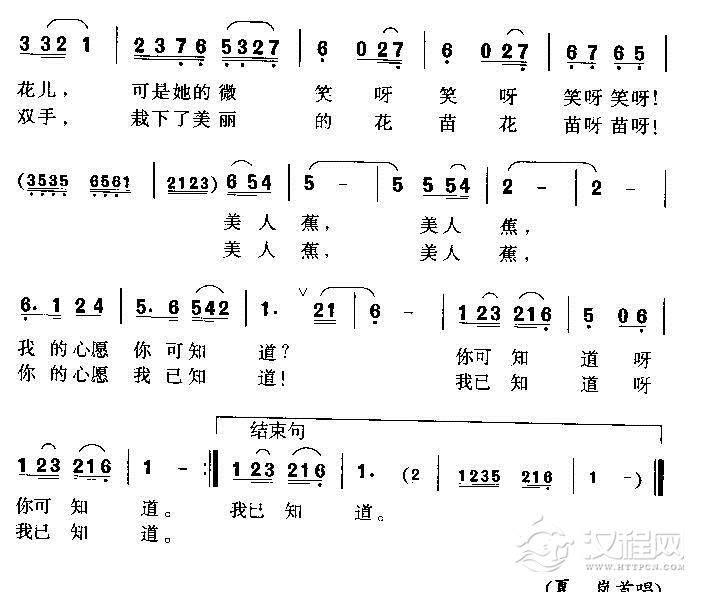 3 32 1 | 2376 5327 | 6 027 | 6 027 | 67 65 |
花儿， 可是她的微 笑 呀 笑 呀 笑呀 笑呀！
双手， 栽下了美丽 的 花 苗 花 苗呀 苗呀！
(3535 6561 | 2123) 654 | 5 - | 5 554 | 2 - | 2 - |
美人 蕉， 美人 蕉，
美人 蕉， 美人 蕉，
6. 1 24 | 5. 6 542 | 1. ∨ 21 | 6 - | 123 216 | 5 06 |
我 的心愿 你 可知 道？ 你可 知 道 呀
你 的心愿 我 已知 道！ 我已 知 道 呀
结束句
123 216 | 1 - :‖ 123 216 | 1. (2 | 1235 216 | 1 -) ‖
你可 知 道。 我已 知 道。
我已 知 道。
汉程网
HTTPCN.COM
(夏 岚首唱)